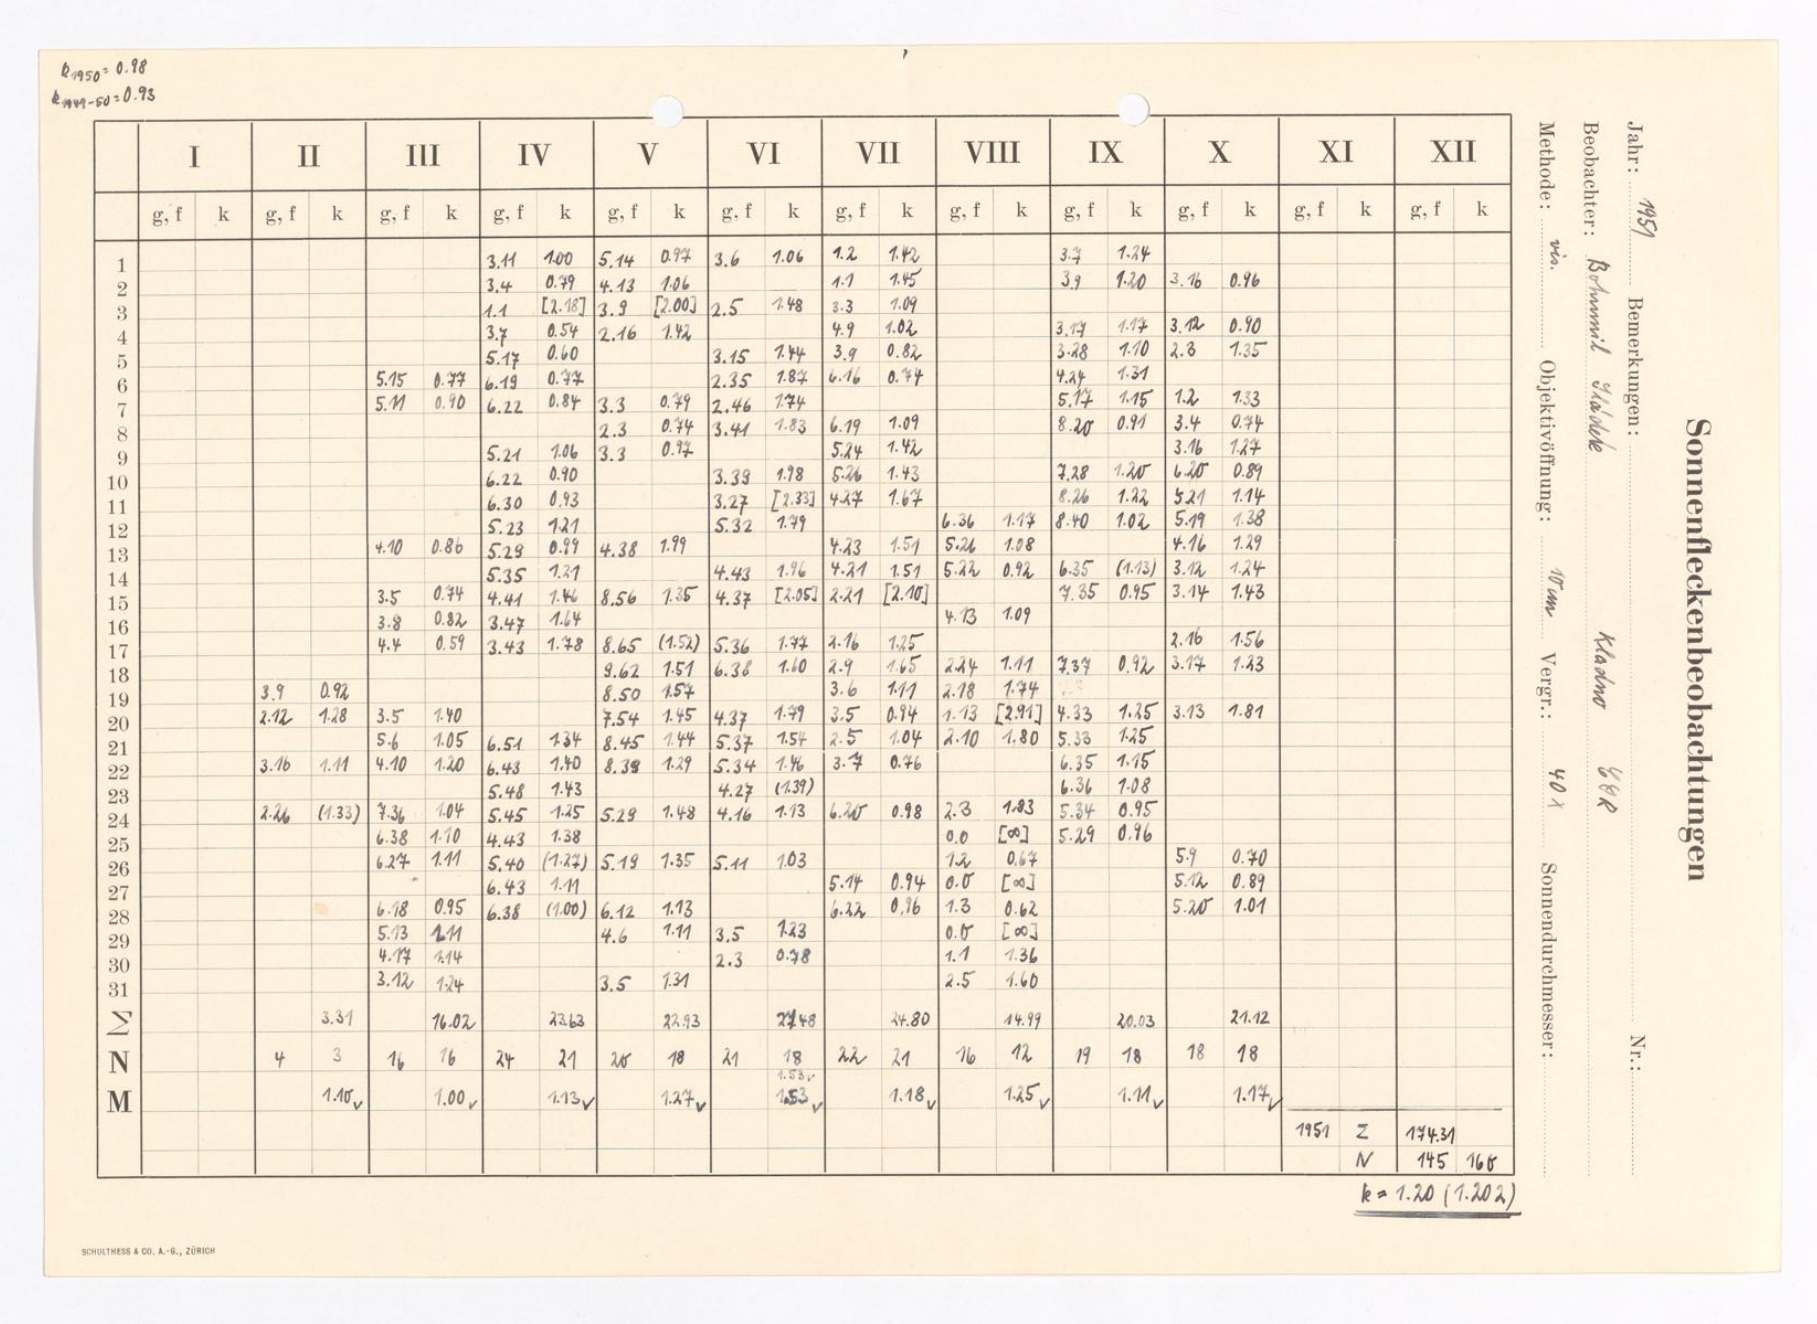 k1950 = 0.98
k1949-50 = 0.93
Sonnenfleckenbeobachtungen
Jahr: 1951 Bemerkungen: Nr.:
Beobachter: Bohumil Kladno ČSR
Methode: vis. Objektivöffnung: 10 cm Vergr.: 40 x Sonnendurchmesser:
I II III IV V VI VII VIII IX X XI XII
g, f k g, f k g, f k g, f k g, f k g, f k g, f k g, f k g, f k g, f k g, f k g, f k
1 3.11 1.00 5.14 0.97 3.6 1.06 1.2 1.42 3.7 1.24
2 3.4 0.79 4.13 1.06 1.1 1.45 3.9 1.20 3.16 0.96
3 1.1 [2.18] 3.9 [2.00] 2.5 1.48 3.3 1.09
4 3.7 0.54 2.16 1.42 4.9 1.02 3.17 1.17 3.12 0.90
5 5.17 0.60 3.15 1.44 3.9 0.82 3.28 1.10 2.3 1.35
6 5.15 0.77 6.19 0.77 2.35 1.87 6.16 0.74 4.24 1.31
7 5.11 0.90 6.22 0.84 3.3 0.79 2.46 1.74 5.17 1.15 1.2 1.33
8 2.3 0.74 3.41 1.83 6.19 1.09 8.20 0.91 3.4 0.74
9 5.21 1.06 3.3 0.97 5.24 1.42 3.16 1.27
10 6.22 0.90 3.39 1.98 5.26 1.43 7.28 1.20 6.20 0.89
11 6.30 0.93 3.27 [2.33] 4.27 1.67 8.26 1.22 5.21 1.14
12 5.23 1.21 5.32 1.79 6.36 1.17 8.40 1.02 5.19 1.38
13 4.10 0.86 5.29 0.99 4.38 1.99 4.23 1.51 5.26 1.08 4.16 1.29
14 5.35 1.21 4.43 1.96 4.21 1.51 5.22 0.92 6.35 (1.13) 3.12 1.24
15 3.5 0.74 4.41 1.46 8.56 1.35 4.37 [2.05] 2.21 [2.10] 7.35 0.95 3.14 1.43
16 3.8 0.82 3.47 1.64 4.13 1.09
17 4.4 0.59 3.43 1.78 8.65 (1.52) 5.36 1.77 2.16 1.25 2.16 1.56
18 9.62 1.51 6.38 1.60 2.9 1.65 2.24 1.11 7.37 0.92 3.17 1.23
19 3.9 0.92 8.50 1.57 3.6 1.11 2.18 1.74
20 2.12 1.28 3.5 1.40 7.54 1.45 4.37 1.79 3.5 0.94 1.13 [2.91] 4.33 1.25 3.13 1.81
21 5.6 1.05 6.51 1.34 8.45 1.44 5.37 1.54 2.5 1.04 2.10 1.80 5.33 1.25
22 3.16 1.11 4.10 1.20 6.43 1.40 8.39 1.29 5.34 1.46 3.7 0.76 6.35 1.15
23 5.48 1.43 4.27 (1.39) 6.36 1.08
24 2.26 (1.33) 7.36 1.04 5.45 1.25 5.29 1.48 4.16 1.13 6.20 0.98 2.3 1.83 5.34 0.95
25 6.38 1.10 4.43 1.38 0.0 [∞] 5.29 0.96
26 6.27 1.11 5.40 (1.27) 5.19 1.35 5.11 1.03 1.2 0.67 5.9 0.70
27 6.43 1.11 5.14 0.94 0.0 [∞] 5.12 0.89
28 6.18 0.95 6.38 (1.00) 6.12 1.13 6.22 0.96 1.3 0.62 5.20 1.01
29 5.13 1.11 4.6 1.11 3.5 1.23 0.0 [∞]
30 4.17 1.14 2.3 0.78 1.1 1.36
31 3.12 1.24 3.5 1.31 2.5 1.60
Σ 3.31 16.02 23.63 22.93 27.48 24.80 14.99 20.03 21.12
N 4 3 16 16 24 21 20 18 21 18 22 21 16 12 19 18 18 18
1.53 ✓
M 1.10 ✓ 1.00 ✓ 1.13 ✓ 1.27 ✓ 1.53 ✓ 1.18 ✓ 1.25 ✓ 1.11 ✓ 1.17 ✓
1951 Σ 174.31
N 145 160
k = 1.20 (1.202)
SCHULTHESS & CO. A.-G., ZÜRICH